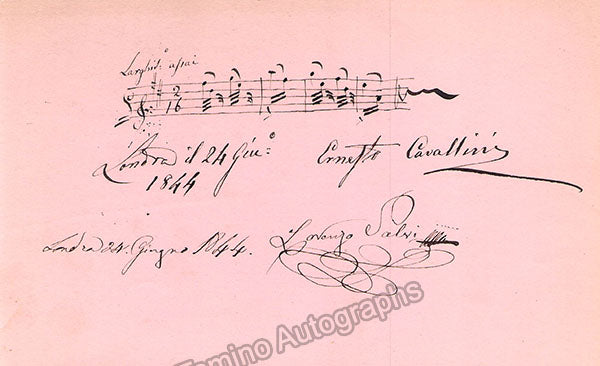 Larghtº assai
2
16
Londra il 24 Giuº: Ernesto Cavallini
1844
Londra 24. Giugno 1844. Lorenzo Salvi
Tamino Autographs